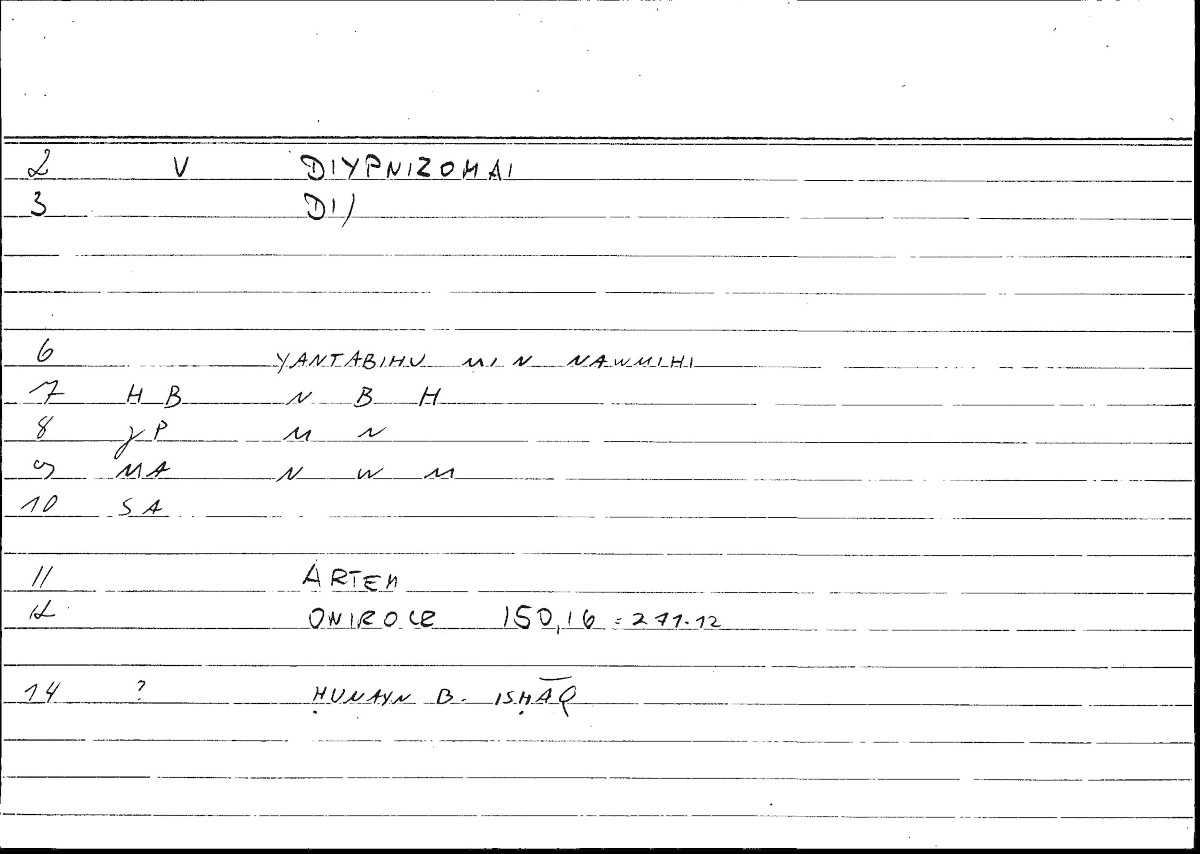 2 V DIYPNIZOMAI
3 DI)
6 YANTABIHU MIN NAWMIHI
7 H B N B H
8 γP M N
9 MA N W M
10 SA
11 ARTEM
12 ONIROCR 150,16 = 271.12
14 ? ḤUNAYN B. ISḤĀQ